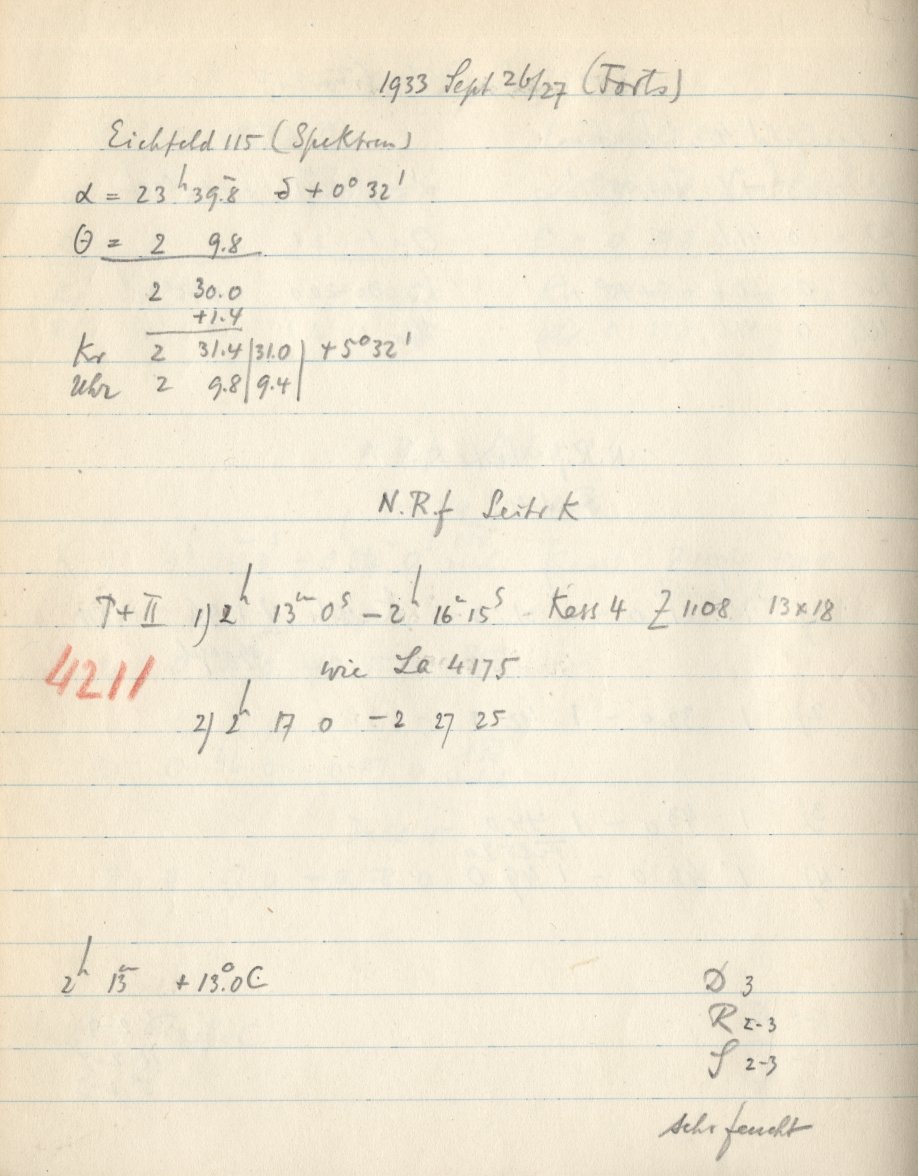 1933 Sept 26/27 (Forts)
Eichfeld 115 (Spektren)
α = 23ʰ 39.ᵐ8 δ + 0° 32'
θ = 2 9.8
2 30.0
+1.4
Kr 2 31.4 | 31.0 | + 5° 32'
Uhr 2 9.8 | 9.4 |
N.R.f
I + II 1) 2ʰ 13ᵐ 0ˢ – 2ʰ 16ᵐ 15ˢ – Kass 4 Z 1108 13×18
4211
wie La 4175
2) 2ʰ 17 0 – 2 27 25
2ʰ 15ᵐ + 13.°0 C
D 3
R 2-3
S 2-3
sehr feucht